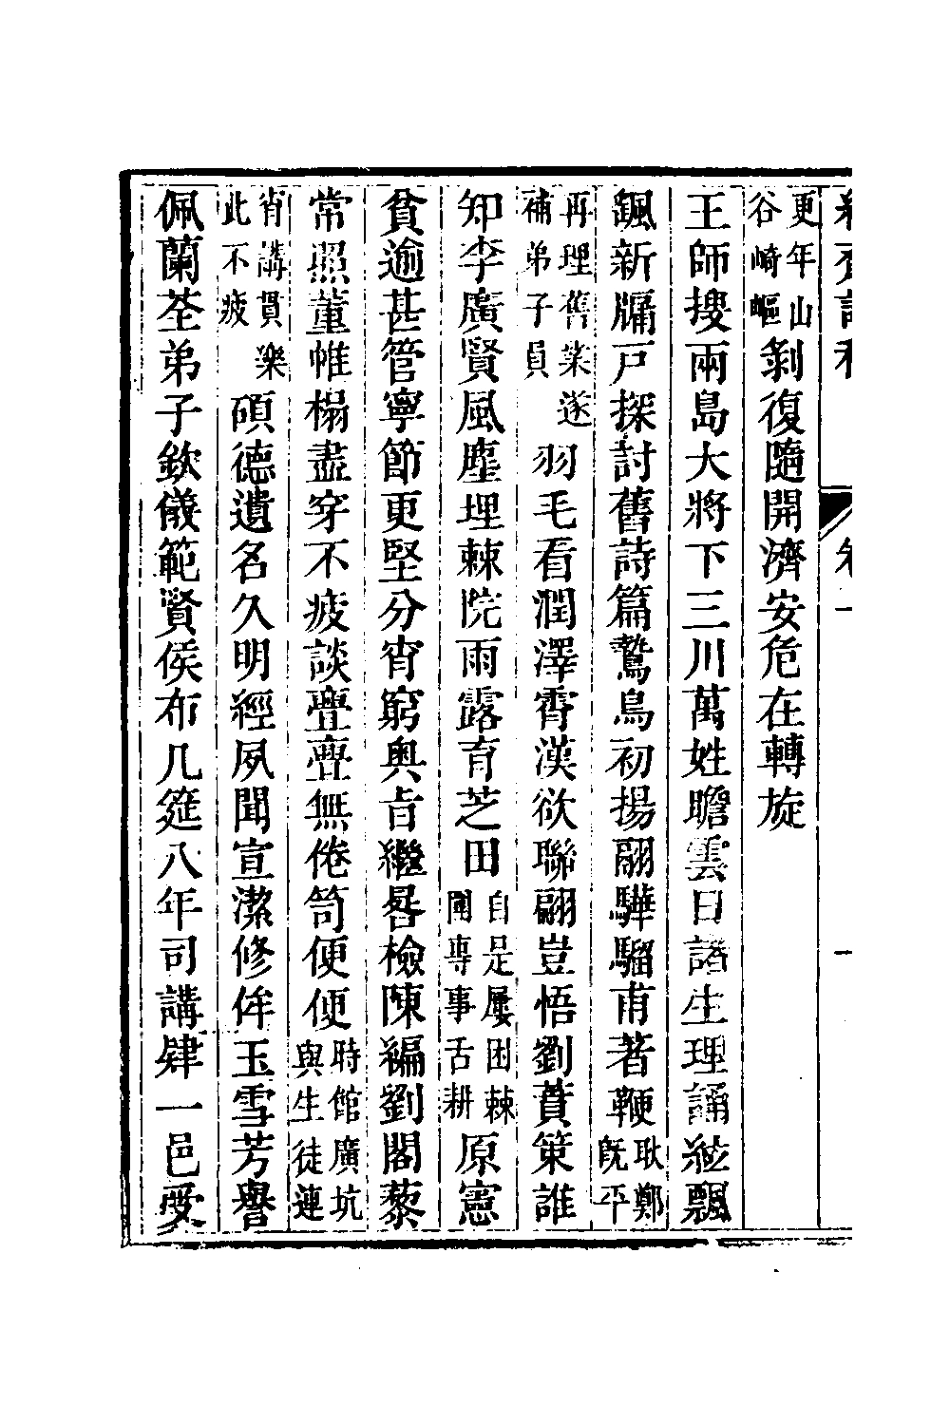 更年山谷崎嶇剝復隨開濟安危在轉旋
王師搜兩島大將下三川萬姓瞻雲日諸生理誦絃飄
颻新牖戸探討舊詩篇鷙鳥初揚翮驊騮甫著鞭耿鄭既平
再理舊業遂補弟子員羽毛看潤澤霄漢欲聯翩豈悟劉蕡策誰
知李廣賢風塵埋棘院雨露育芝田自是屢困棘闈專事舌耕原憲
貧逾甚管寧節更堅分宵窮奧旨繼晷檢陳編劉閣藜
常照董帷榻盡穿不疲談亹亹無倦笥便便時館廣坑與生徒連
宵講貫樂此不疲碩德遺名久明經夙聞宣潔修侔玉雪芳譽
佩蘭荃弟子欽儀範賢侯布几筵八年司講肄一邑受